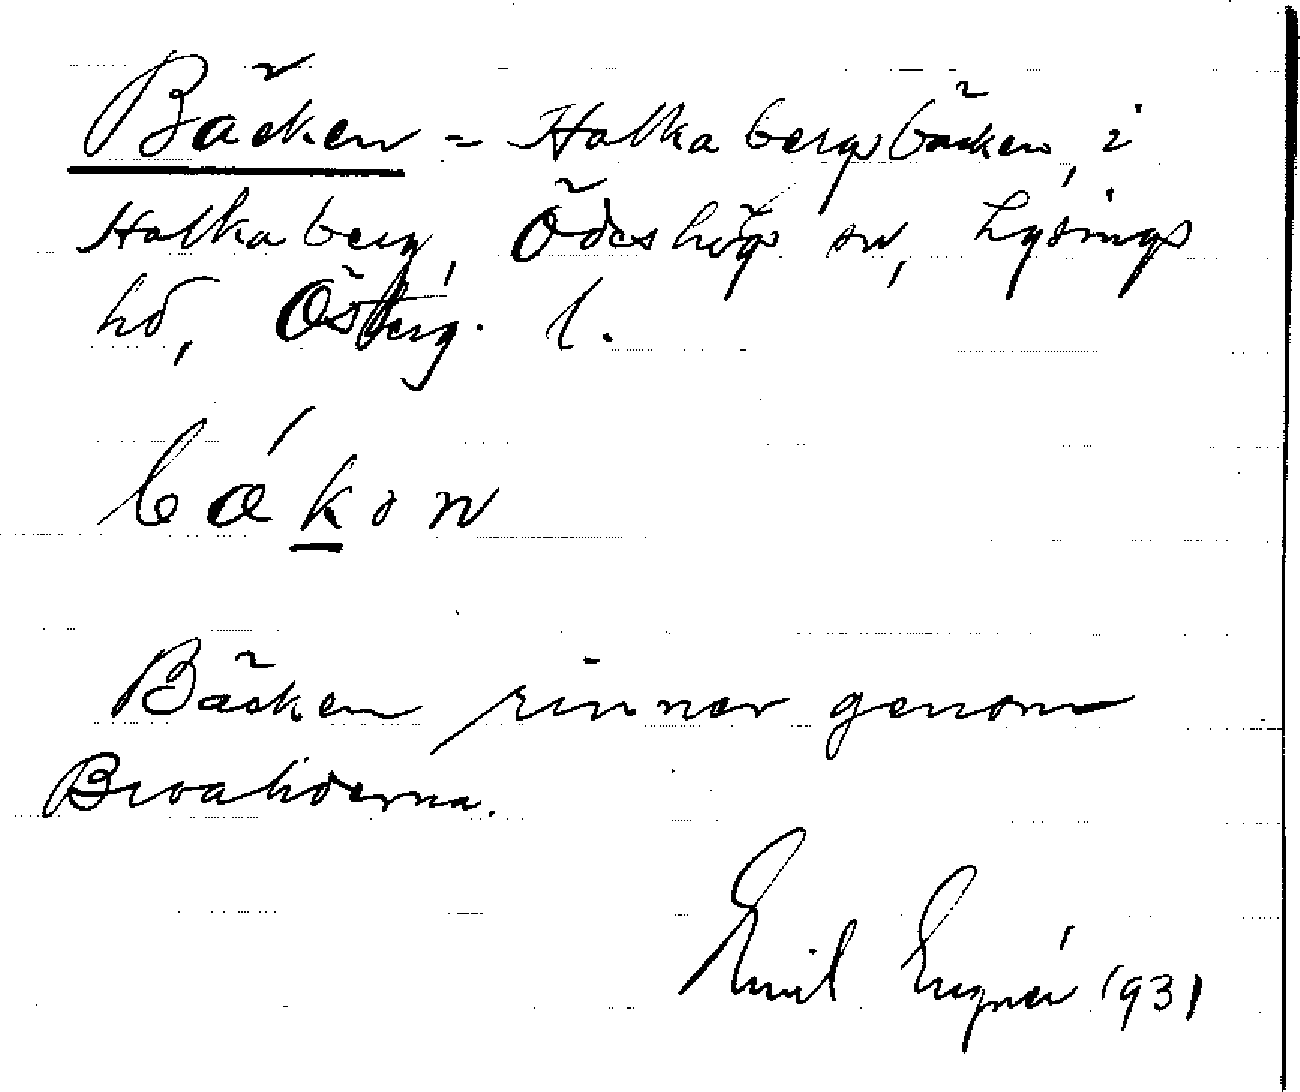 Bäcken = Holkabergsbäcken, i
Holkaberg, Ödeshögs sn, Lysings
hd, Österg. l.
bákən
Bäcken rinner genom
Emil Engnér 1931